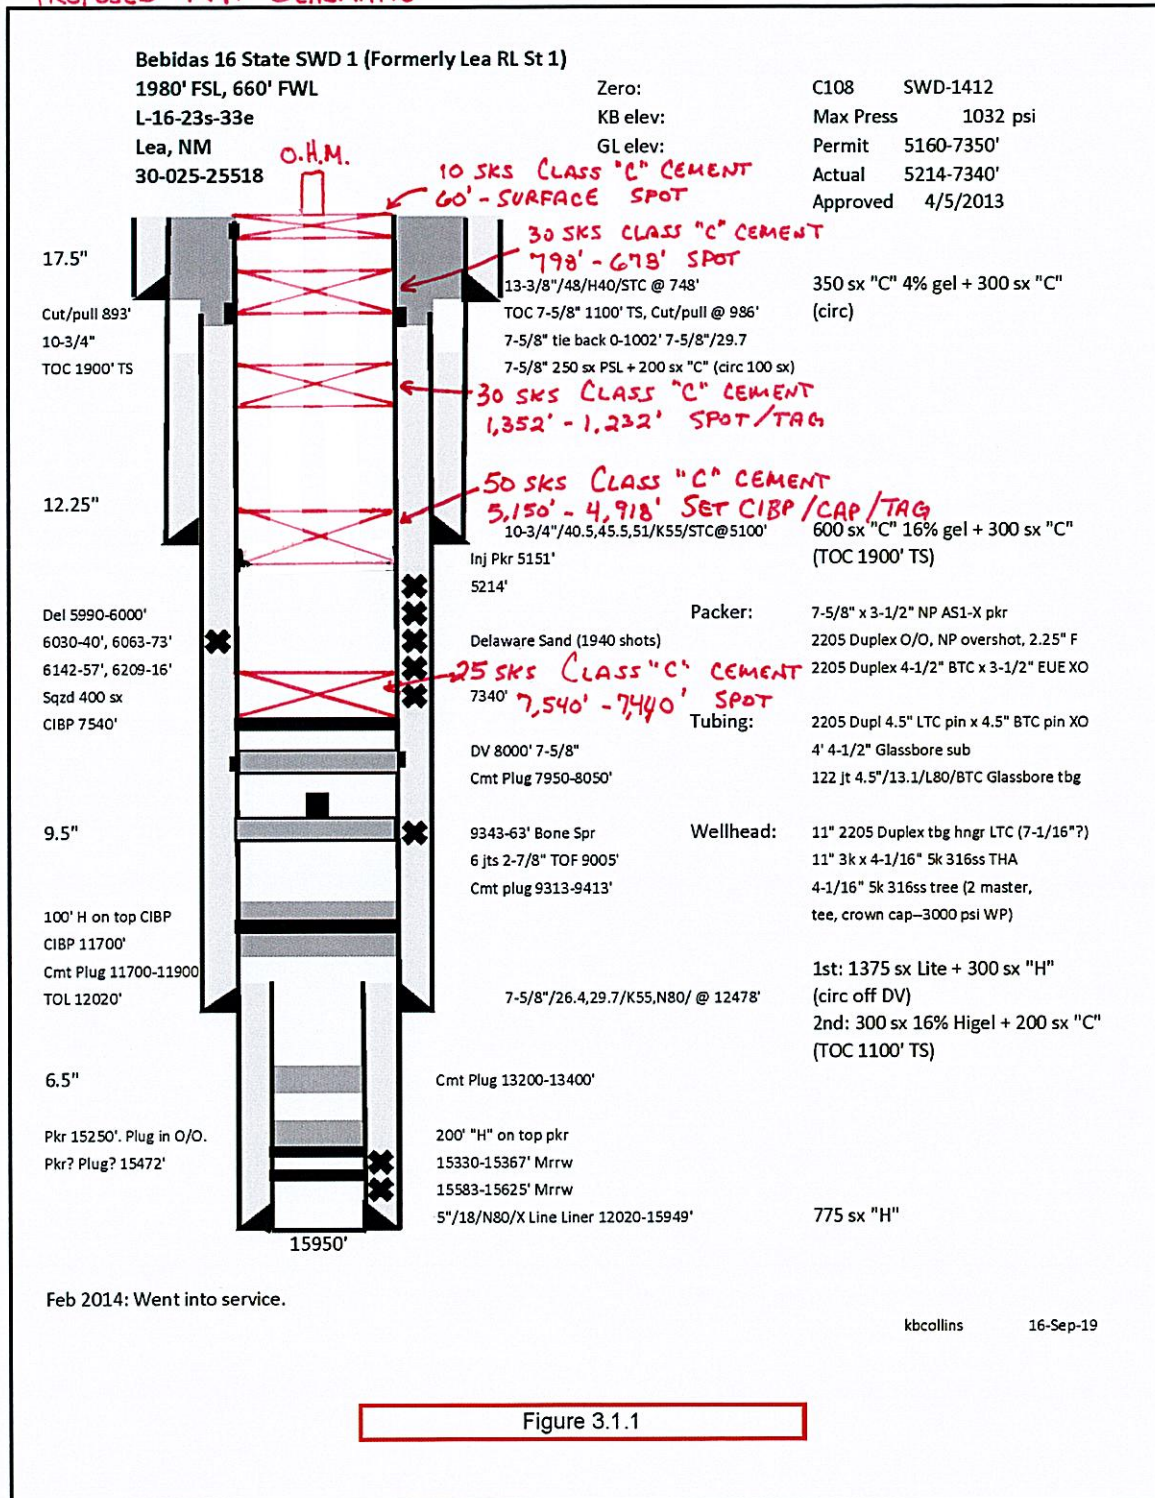 PROPOSED P+A SCHEMATIC
Bebidas 16 State SWD 1 (Formerly Lea RL St 1)
1980' FSL, 660' FWL
L-16-23s-33e
Lea, NM
30-025-25518
Zero:
KB elev:
GL elev:
C108 SWD-1412
Max Press 1032 psi
Permit 5160-7350'
Actual 5214-7340'
Approved 4/5/2013
O.H.M.
10 SKS CLASS "C" CEMENT
60' - SURFACE SPOT
30 SKS CLASS "C" CEMENT
798' - 678' SPOT
17.5"
13-3/8"/48/H40/STC @ 748'
350 sx "C" 4% gel + 300 sx "C"
(circ)
Cut/pull 893'
10-3/4"
TOC 1900' TS
TOC 7-5/8" 1100' TS, Cut/pull @ 986'
7-5/8" tie back 0-1002' 7-5/8"/29.7
7-5/8" 250 sx PSL + 200 sx "C" (circ 100 sx)
30 SKS CLASS "C" CEMENT
1,352' - 1,232' SPOT/TAG
12.25"
50 SKS CLASS "C" CEMENT
5,150' - 4,918' SET CIBP/CAP/TAG
10-3/4"/40.5,45.5,51/K55/STC@5100'
600 sx "C" 16% gel + 300 sx "C"
(TOC 1900' TS)
Inj Pkr 5151'
5214'
Del 5990-6000'
6030-40', 6063-73'
6142-57', 6209-16'
Sqzd 400 sx
CIBP 7540'
Delaware Sand (1940 shots)
25 SKS CLASS "C" CEMENT
7,540' - 7,440' SPOT
7340'
Packer:
7-5/8" x 3-1/2" NP AS1-X pkr
2205 Duplex O/O, NP overshot, 2.25" F
2205 Duplex 4-1/2" BTC x 3-1/2" EUE XO
Tubing:
2205 Dupl 4.5" LTC pin x 4.5" BTC pin XO
4' 4-1/2" Glassbore sub
122 jt 4.5"/13.1/L80/BTC Glassbore tbg
DV 8000' 7-5/8"
Cmt Plug 7950-8050'
9.5"
9343-63' Bone Spr
6 jts 2-7/8" TOF 9005'
Cmt plug 9313-9413'
Wellhead:
11" 2205 Duplex tbg hngr LTC (7-1/16"?)
11" 3k x 4-1/16" 5k 316ss THA
4-1/16" 5k 316ss tree (2 master,
tee, crown cap--3000 psi WP)
100' H on top CIBP
CIBP 11700'
Cmt Plug 11700-11900
TOL 12020'
7-5/8"/26.4,29.7/K55,N80/ @ 12478'
1st: 1375 sx Lite + 300 sx "H"
(circ off DV)
2nd: 300 sx 16% Higel + 200 sx "C"
(TOC 1100' TS)
6.5"
Cmt Plug 13200-13400'
Pkr 15250'. Plug in O/O.
Pkr? Plug? 15472'
200' "H" on top pkr
15330-15367' Mrrw
15583-15625' Mrrw
5"/18/N80/X Line Liner 12020-15949'
775 sx "H"
15950'
Feb 2014: Went into service.
kbcollins 16-Sep-19
Figure 3.1.1